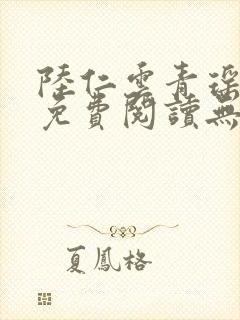 陸仁雲青瑶
免費閱讀無
夏鳳格